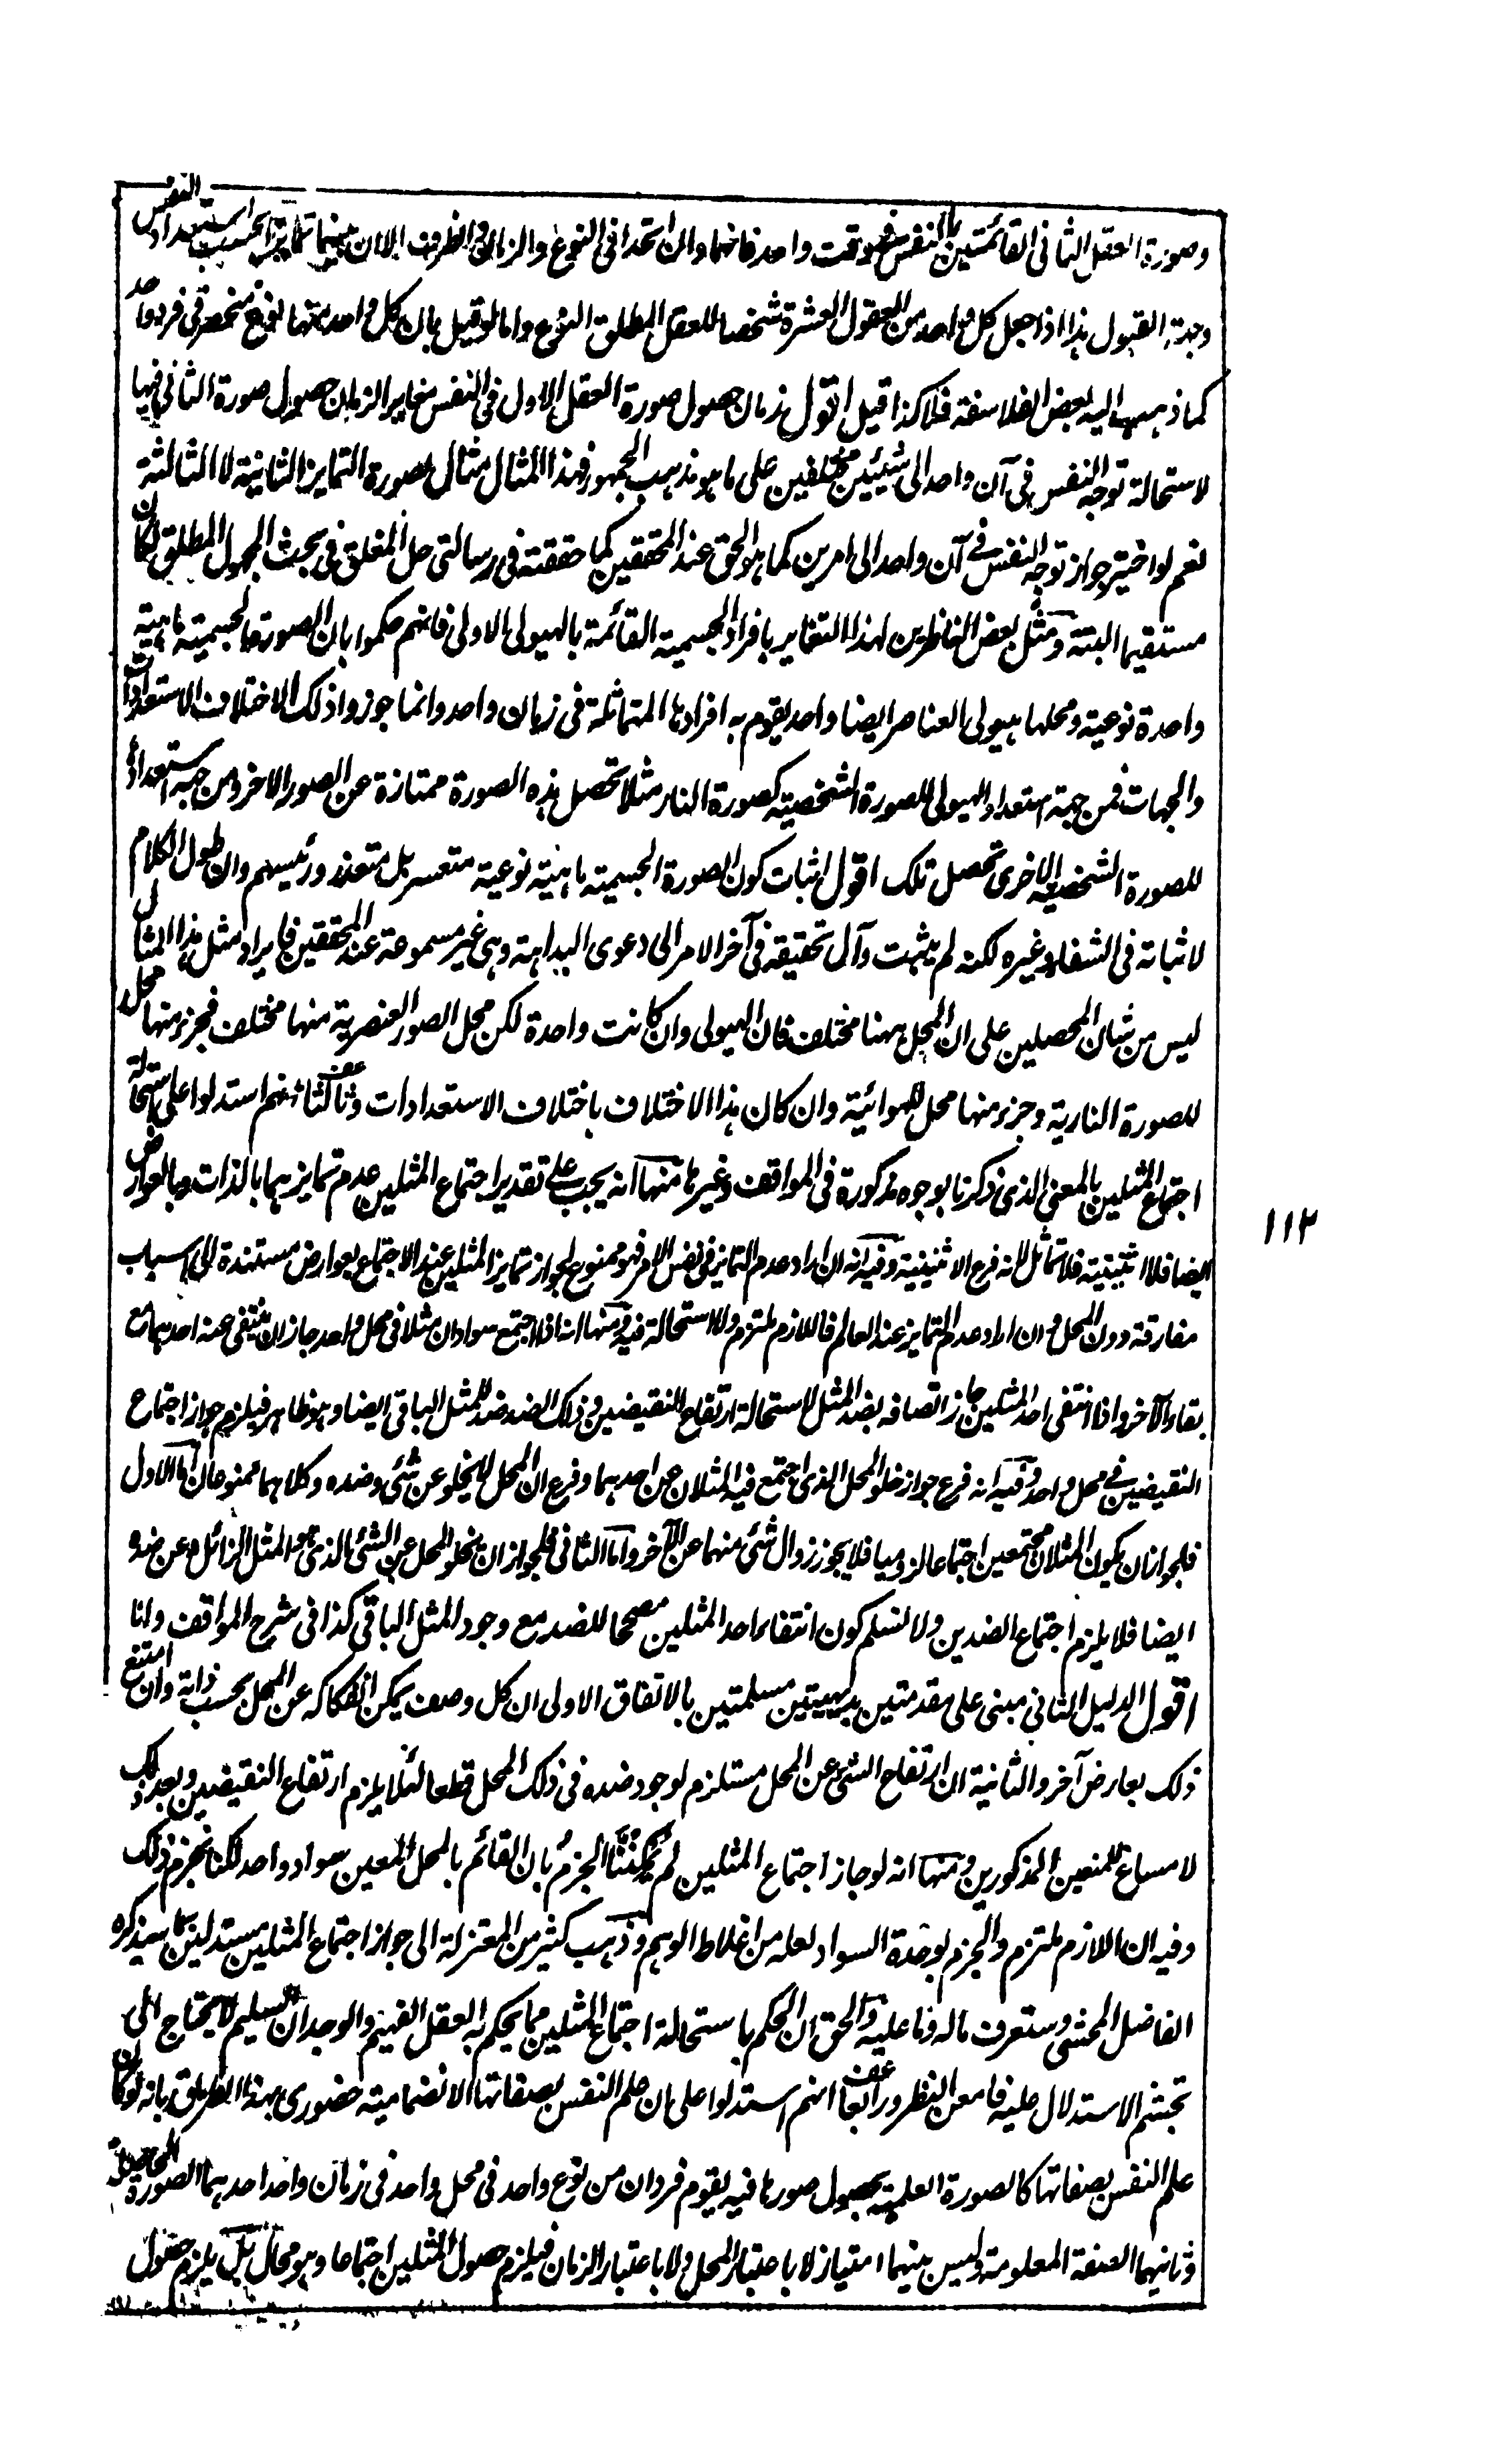 وصورة العقل الثانى القائمتين بالنفس فى وقت واحد فانهما وان اتحدا فى النوع والزمان والظرف الا ان بينهما تمايزا بحسب استعداد النفس
وجهة القبول هذا اذا جعل كل واحد من العقول العشرة شخصا للعقل المطلق النوع واما لو قيل بان كل واحد منها نوع منحصر فى فرد واحد
كما ذهب اليه بعض الفلاسفة فلا كذا قيل اقول زمان حصول صورة العقل الاول فى النفس مغاير الزمان حصول صورة الثانى فيها
لاستحالة توجه النفس فى آن واحد الى شيئين مختلفين على ما هو مذهب الجمهور فهذا المثال مثال لصورة التمايز الثانية لا الثالثة
نعم لو اختير جواز توجه النفس فى آن واحد الى امرين كما هو الحق عند المحققين كما حققته فى رسالتى حل المغلق فى بحث المجهول المطلق لكان
مستقيما البتة ومثل بعض الناظرين لهذا التغاير بافراد الجسمية القائمة بالهيولى الاولى فانهم حكموا بان الصورة الجسمية ماهية
واحدة نوعية ومحلها هيولى العناصر ايضا واحد يقوم به افرادها المتماثلة فى زمان واحد وانما جوزوا ذلك لاختلاف الاستعدادات
والجهات فمن جهة استعداد الهيولى للصورة الشخصية كصورة النار مثلا تحصل هذه الصورة ممتازة عن الصور الاخر ومن جهة استعدادها
للصورة الشخصية الاخرى تحصل تلك اقول اثبات كون الصورة الجسمية ماهية نوعية متعسر بل متعذر ورئيسهم وان طول الكلام
لاثباته فى الشفاء وغيره لكنه لم يثبت وآل تحقيقه فى آخر الامر الى دعوى البداهة وهى غير مسموعة عند المحققين فايراد مثل هذا المثال
ليس من شان المحصلين على ان المحل ههنا مختلف فان الهيولى وان كانت واحدة لكن محل الصور العنصرية منها مختلف فجزء منها محل
للصورة النارية وجزء منها محل للهوائية وان كان هذا الاختلاف باختلاف الاستعدادات وثالثا انهم استدلوا على استحالة
اجتماع المثلين بالمعنى الذى ذكرنا بوجوه مذكورة فى المواقف وغيرها منها انه يجب على تقدير اجتماع المثلين عدم تمايزهما بالذات وبالعوارض
ايضا فلا اثنينية فلا تماثل لانه فرع الاثنينية وفيه انه ان اراد عدم التمايز فى نفس الامر فهو ممنوع لجواز تمايز المثلين عند الاجتماع بعوارض مستندة الى اسباب
مفارقة دون المحل وان اراد عدم التمايز عند العالم فاللازم ملتزم ولا استحالة فيه ومنها انه اذا اجتمع سوادان مثلا فى محل واحد جاز ان ينتفى عنه احدهما مع
بقاء الآخر واذا انتفى احد المثلين جاز اتصافه بضد المثل لاستحالة ارتفاع النقيضين وذلك الضد ضد للمثل الباقى ايضا وهو ظاهر فيلزم جواز اجتماع
النقيضين فى محل واحد وفيه انه فرع جواز خلو المحل الذى اجتمع فيه المثلان عن احدهما وفرع ان المحل لا يخلو عن شئ وضده وكلاهما ممنوعان اما الاول
فلجواز ان يكون المثلان مجتمعين اجتماعا لزوميا فلا يجوز زوال شئ منهما عن الآخر واما الثانى فلجواز ان يخلو المحل عن الشئ الذى هو المثل الزائل وعن ضده
ايضا فلا يلزم اجتماع الضدين ولا نسلم كون انتفاء احد المثلين مصححا للضد مع وجود المثل الباقى كذا فى شرح المواقف وانا
اقول الدليل الثانى مبنى على مقدمتين بديهيتين مسلمتين بالاتفاق الاولى ان كل وصف يمكن انفكاكه عن المحل بحسب ذاته وان امتنع
ذلك بعارض آخر والثانية ان ارتفاع الشئ عن المحل مستلزم لوجود ضده فى ذلك المحل قطعا لئلا يلزم ارتفاع النقيضين وبعد ذلك
لا مساغ للمنعين المذكورين ومنها انه لو جاز اجتماع المثلين لم يمكننا الجزم بان القائم بالمحل المعين سواد واحد لكنا نجزم ذلك
وفيه ان اللازم ملتزم والجزم بوحدة السواد لعله من اغلاط الوهم وذهب كثير من المعتزلة الى جواز اجتماع المثلين مستدلين بما سيذكره
الفاضل المحشى وستعرف ماله وما عليه والحق ان الحكم باستحالة اجتماع المثلين مما يحكم به العقل الفهيم والوجدان السليم لا يحتاج الى
تجشم الاستدلال عليه فامعن النظر ورابعا انهم استدلوا على ان علم النفس بصفاتها الانضمامية حضورى بهذا الطريق بانه لو كان
علم النفس بصفاتها كالصورة العلمية بحصول صورها فيه يقوم فردان من نوع واحد فى محل واحد فى زمان واحد احدهما الصورة الحاصلة
وثانيهما الصفة المعلومة وليس بينهما امتياز لا باعتبار المحل ولا باعتبار الزمان فيلزم حصول المثلين اجتماعا وهو محال بل يلزم حصول
١١٢